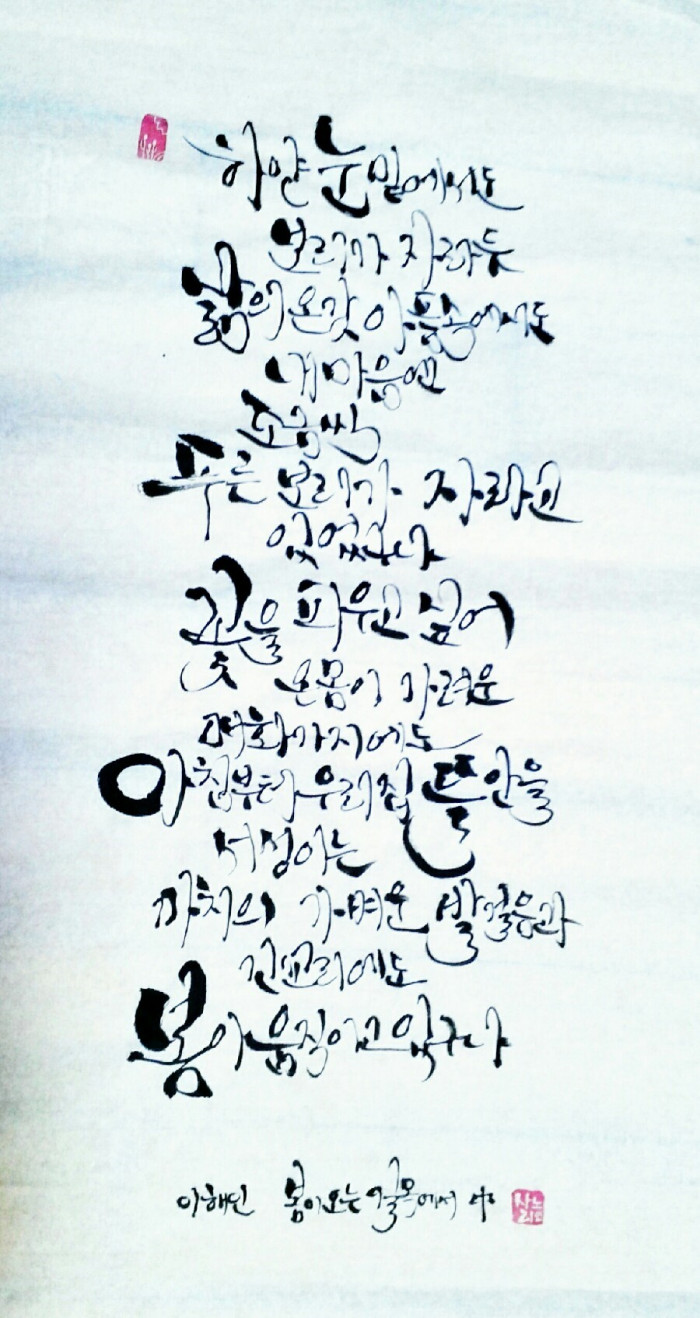 하얀 눈밑에서도
보리가 자라듯
삶의 온갖 아픔속에서도
내마음엔
조금씩
푸른 보리가 자라고
있었구나
꽃을 피우고 싶어
온몸이 가려운
매화가지에도
아침부터 우리집 뜰안을
서성이는
까치의 가벼운 발걸음과
긴꼬리에도
봄이 움직이고 있구나
이해인 봄이 오는 길목에서 中